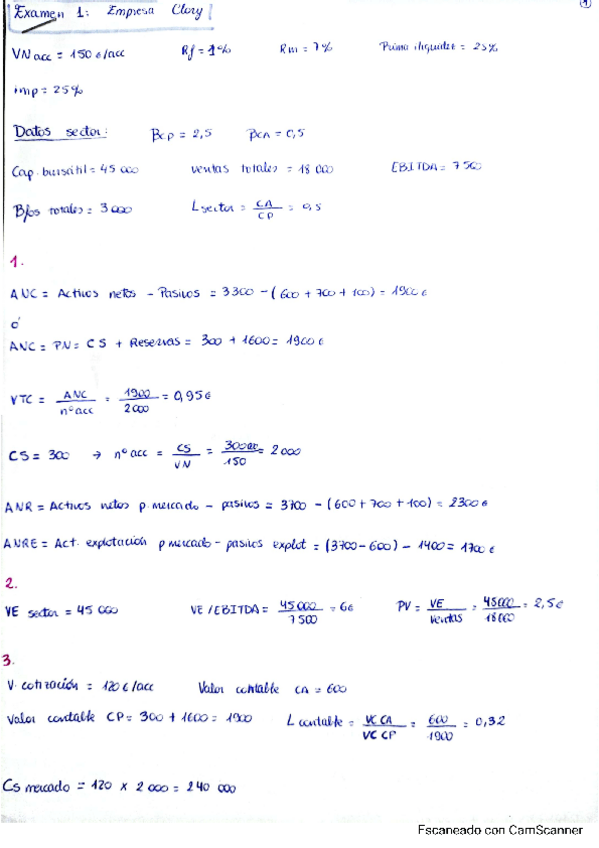 1
Examen 1: Empresa Clory
VN acc = 150 €/acc Rf = 1% Rm = 7% Prima iliquidez = 25%
imp = 25%
Datos sector: βCP = 2,5 βCA = 0,5
Cap. bursátil = 45 000 ventas totales = 18 000 EBITDA = 7 500
Bfos totales = 3 000 L sector = CA / CP = 0,5
1.
ANC = Activos netos - Pasivos = 3300 - (600 + 700 + 100) = 1900 €
ó
ANC = PN = CS + Reservas = 300 + 1600 = 1900 €
VTC = ANC / nº acc = 1900 / 2000 = 0,95 €
CS = 300 → nº acc = CS / VN = 300 000 / 150 = 2 000
ANR = Activos netos p. mercado - pasivos = 3700 - (600 + 700 + 100) = 2300 €
ANRE = Act. explotación p mercado - pasivos explot = (3700 - 600) - 1400 = 1700 €
2.
VE sector = 45 000 VE/EBITDA = 45 000 / 7 500 = 6€ PV = VE / Ventas = 45000 / 18 000 = 2,5€
3.
V. cotización = 120 €/acc Valor contable CA = 600
Valor contable CP = 300 + 1600 = 1900 L contable = VC CA / VC CP = 600 / 1900 = 0,32
Cs mercado = 120 x 2 000 = 240 000
Escaneado con CamScanner